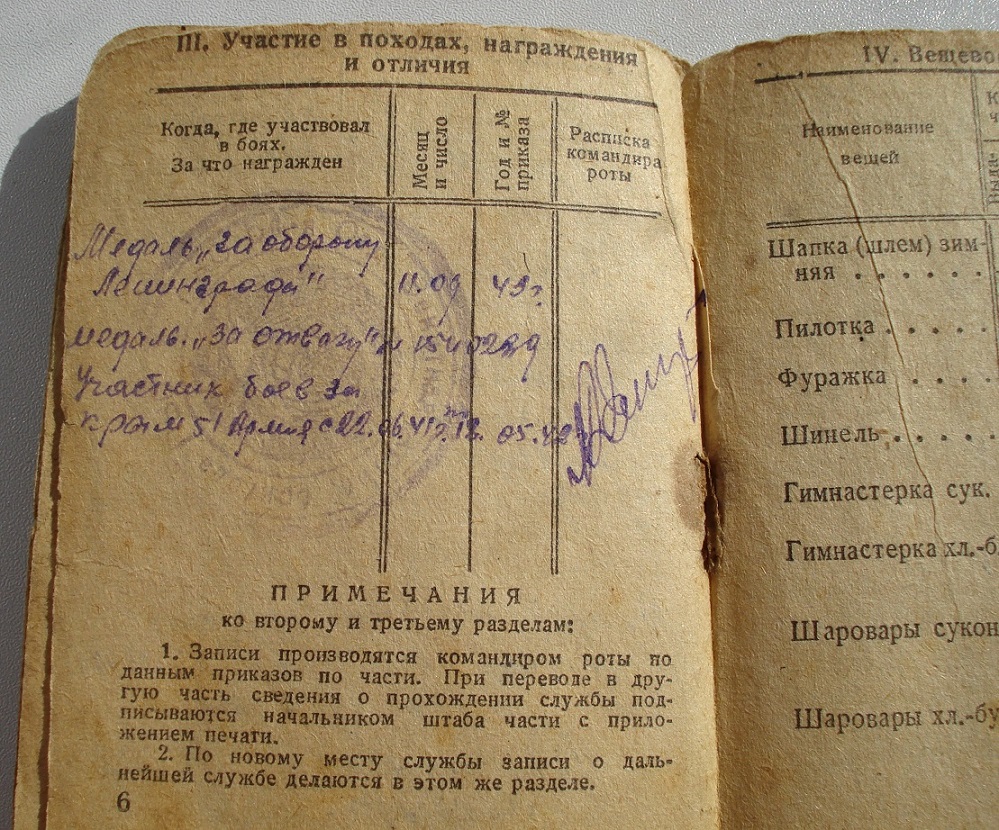 III. Участие в походах, награждения
и отличия
Когда, где участвовал
в боях.
За что награжден
Месяц
и число
Год и №
приказа
Расписка
командира
роты
Медаль „За оборону
Ленинграда" 11.09 43г.
медаль „За отвагу"
Участник боев за
крым 51 Армия с 22.06.41г. 12. 05.42
ПРИМЕЧАНИЯ
ко второму и третьему разделам:
1. Записи производятся командиром роты по
данным приказов по части. При переводе в дру-
гую часть сведения о прохождении службы под-
писываются начальником штаба части с прило-
жением печати.
2. По новому месту службы записи о даль-
нейшей службе делаются в этом же разделе.
6
IV. Вещево
Наименование
вещей
Выда-
Шапка (шлем) зим-
няя . . . . . .
Пилотка . . . .
Фуражка . . . .
Шинель . . . . .
Гимнастерка сук.
Гимнастерка хл.-б
Шаровары сукон
Шаровары хл.-бу